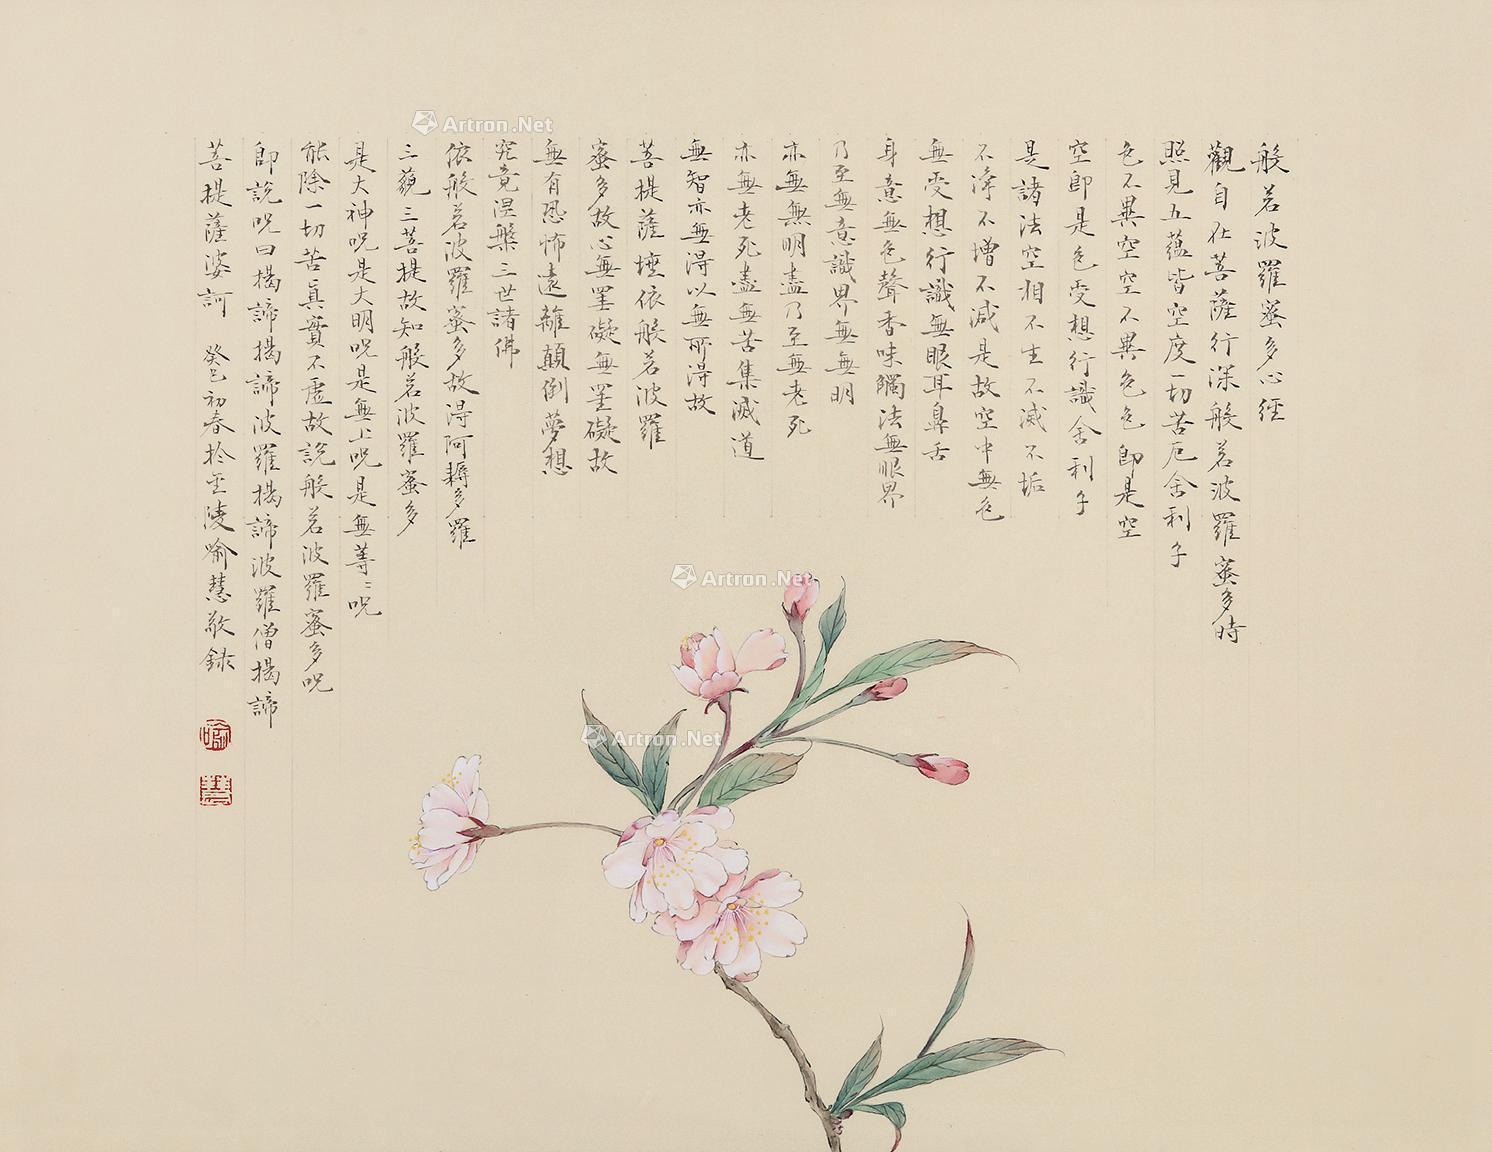 般若波羅蜜多心經
觀自在菩薩行深般若波羅蜜多時
照見五蘊皆空度一切苦厄舍利子
色不異空空不異色色即是空
空即是色受想行識舍利子
是諸法空相不生不滅不垢
不淨不增不減是故空中無色
無受想行識無眼耳鼻舌
身意無色聲香味觸法無眼界
乃至無意識界無無明
亦無無明盡乃至無老死
亦無老死盡無苦集滅道
無智亦無得以無所得故
菩提薩埵依般若波羅
蜜多故心無罣礙無罣礙故
無有恐怖遠離顛倒夢想
究竟涅槃三世諸佛
依般若波羅蜜多故得阿耨多羅
三藐三菩提故知般若波羅蜜多
是大神呪是大明呪是無上呪是無等〻呪
能除一切苦真實不虛故說般若波羅蜜多呪
即說呪曰揭諦揭諦波羅揭諦波羅僧揭諦
菩提薩婆訶 癸巳初春於金陵喻慧敬錄
喻
慧
Artron.Net
Artron.Net
Artron.Net